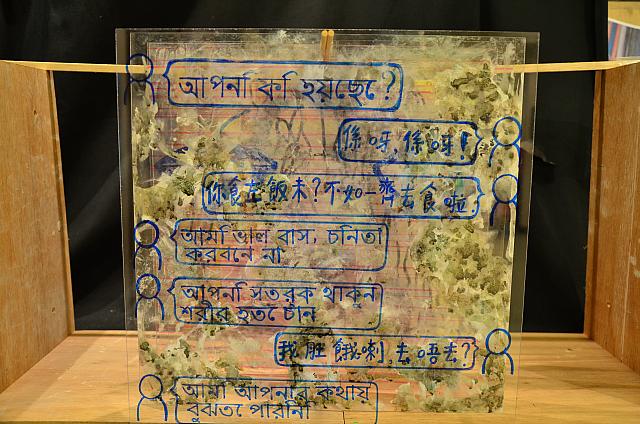 আপনি কি হয়ছে?
係呀,係呀!
你食左飯未?不如一齊去食啦
আমি ভাল বাস, চিনতা
করবনে না
আপনি সতরক থাকুন
শরীর হতে টান
我肚餓喇,去唔去?
আমি আপনার কথায়
বুঝতে পারিনি